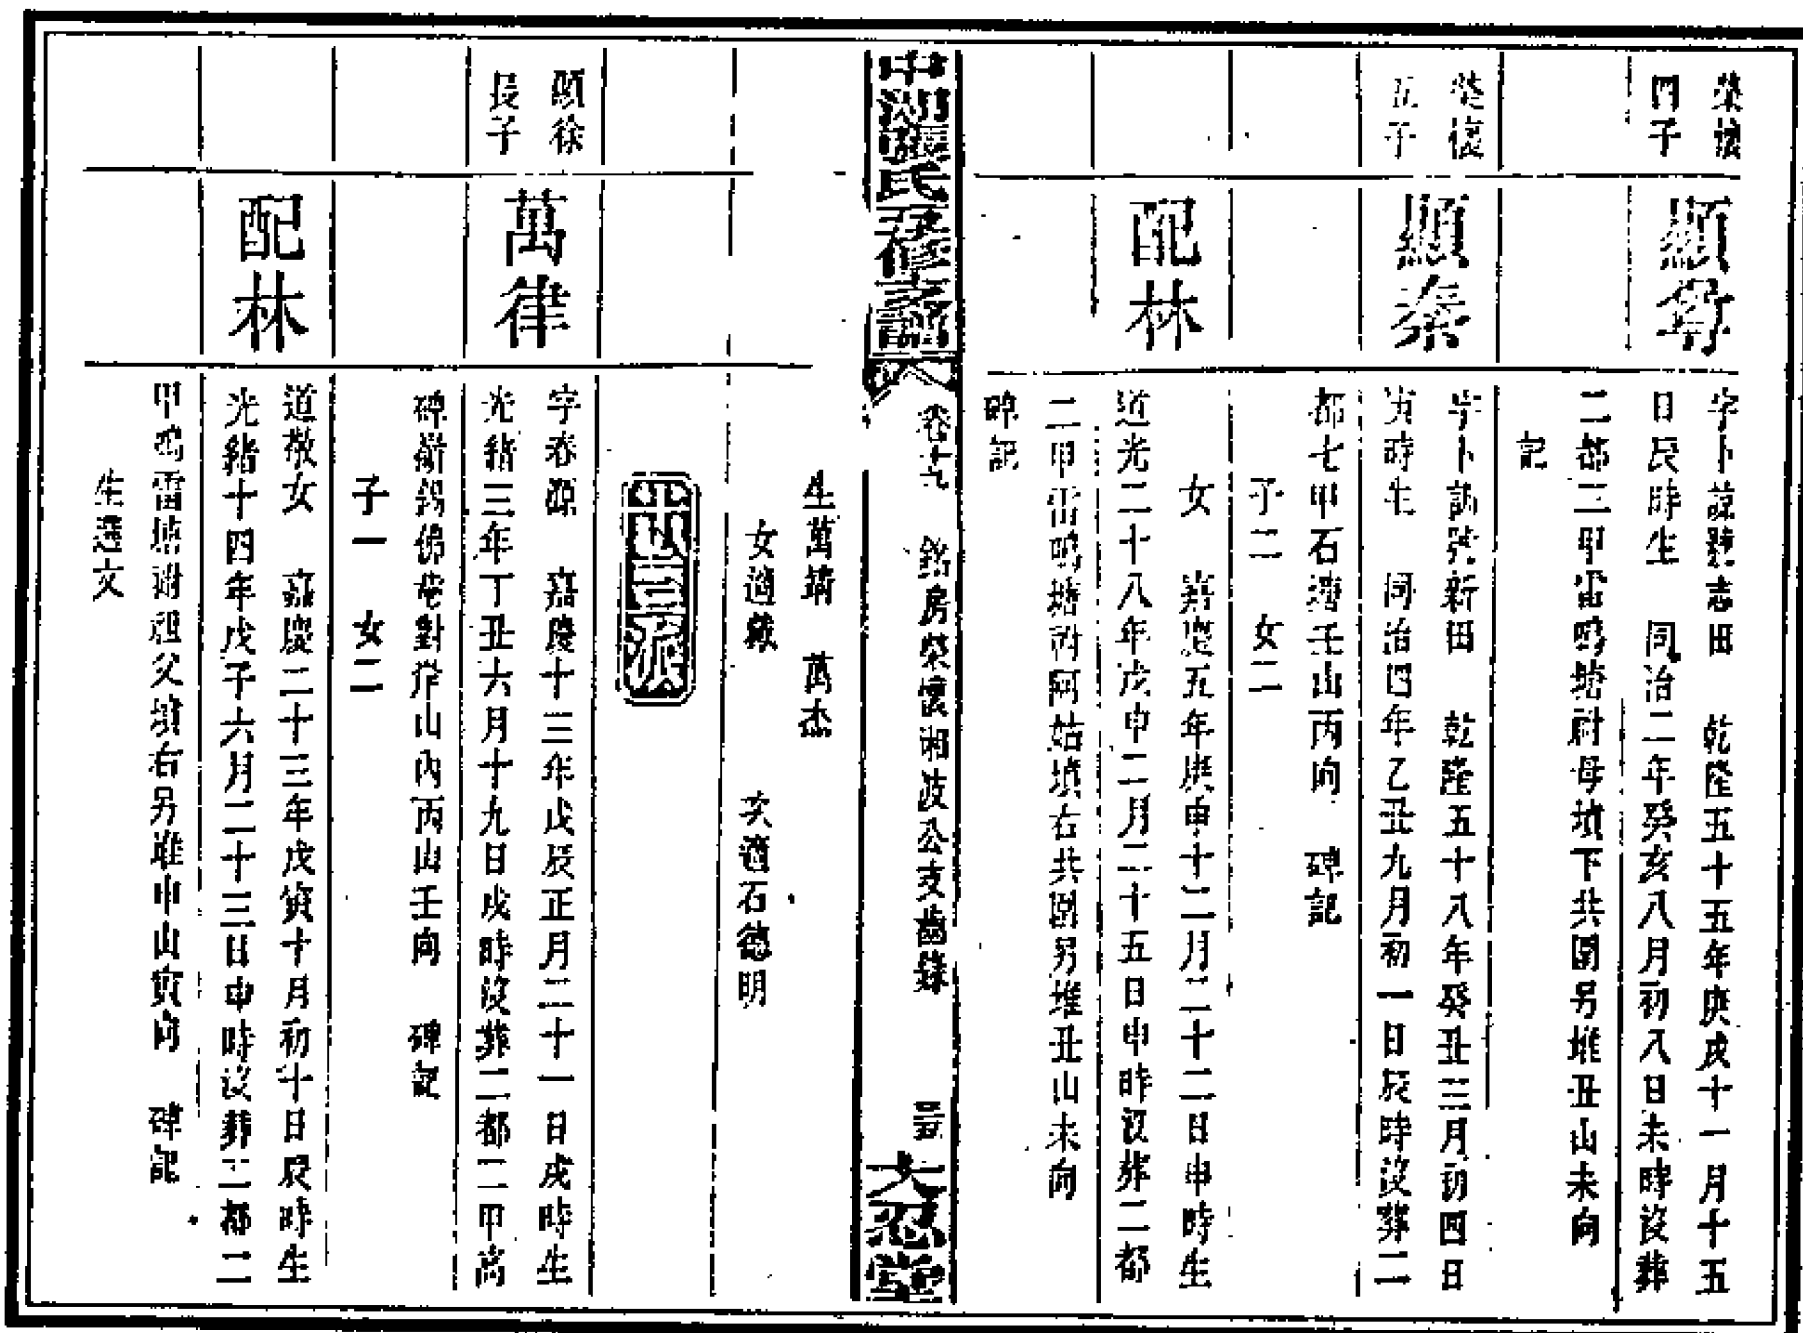 榮懷
四子
顯尊
字卜諒號志田 乾隆五十五年庚戌十一月十五
日辰時生 同治二年癸亥八月初八日未時沒葬
二都三甲雷鳴塘祔母墳下共圍另堆丑山未向
記
榮懷
五子
顯泰
字卜 號新田 乾隆五十八年癸丑三月初四日
寅時生 同治四年乙丑九月初一日辰時沒葬二
都七甲石 壬山丙向 碑記
子二 女二
配林
女 嘉慶五年庚申十二月二十二日申時生
道光二十八年戊申二月二十五日申時沒葬二都
二甲雷鳴塘祔阿姑墳右共圍另堆丑山未向
碑記
中湘張氏五修支譜
卷十九 銘房榮懷湘波公支齒錄
大忍堂
生萬靖 萬杰
女適戴 次適石德明
廿三派
顯徐
長子
萬律
字春源 嘉慶十三年戊辰正月二十一日戌時生
光緒三年丁丑六月十九日戌時沒葬二都二甲高
碑嶺錫佛菴對 山內丙山壬向 碑記
子一 女二
配林
道敬女 嘉慶二十三年戊寅十月初十日辰時生
光緒十四年戊子六月二十三日申時沒葬二都二
甲鳴雷塘祔祖父墳右另堆申山寅向 碑記
生選文